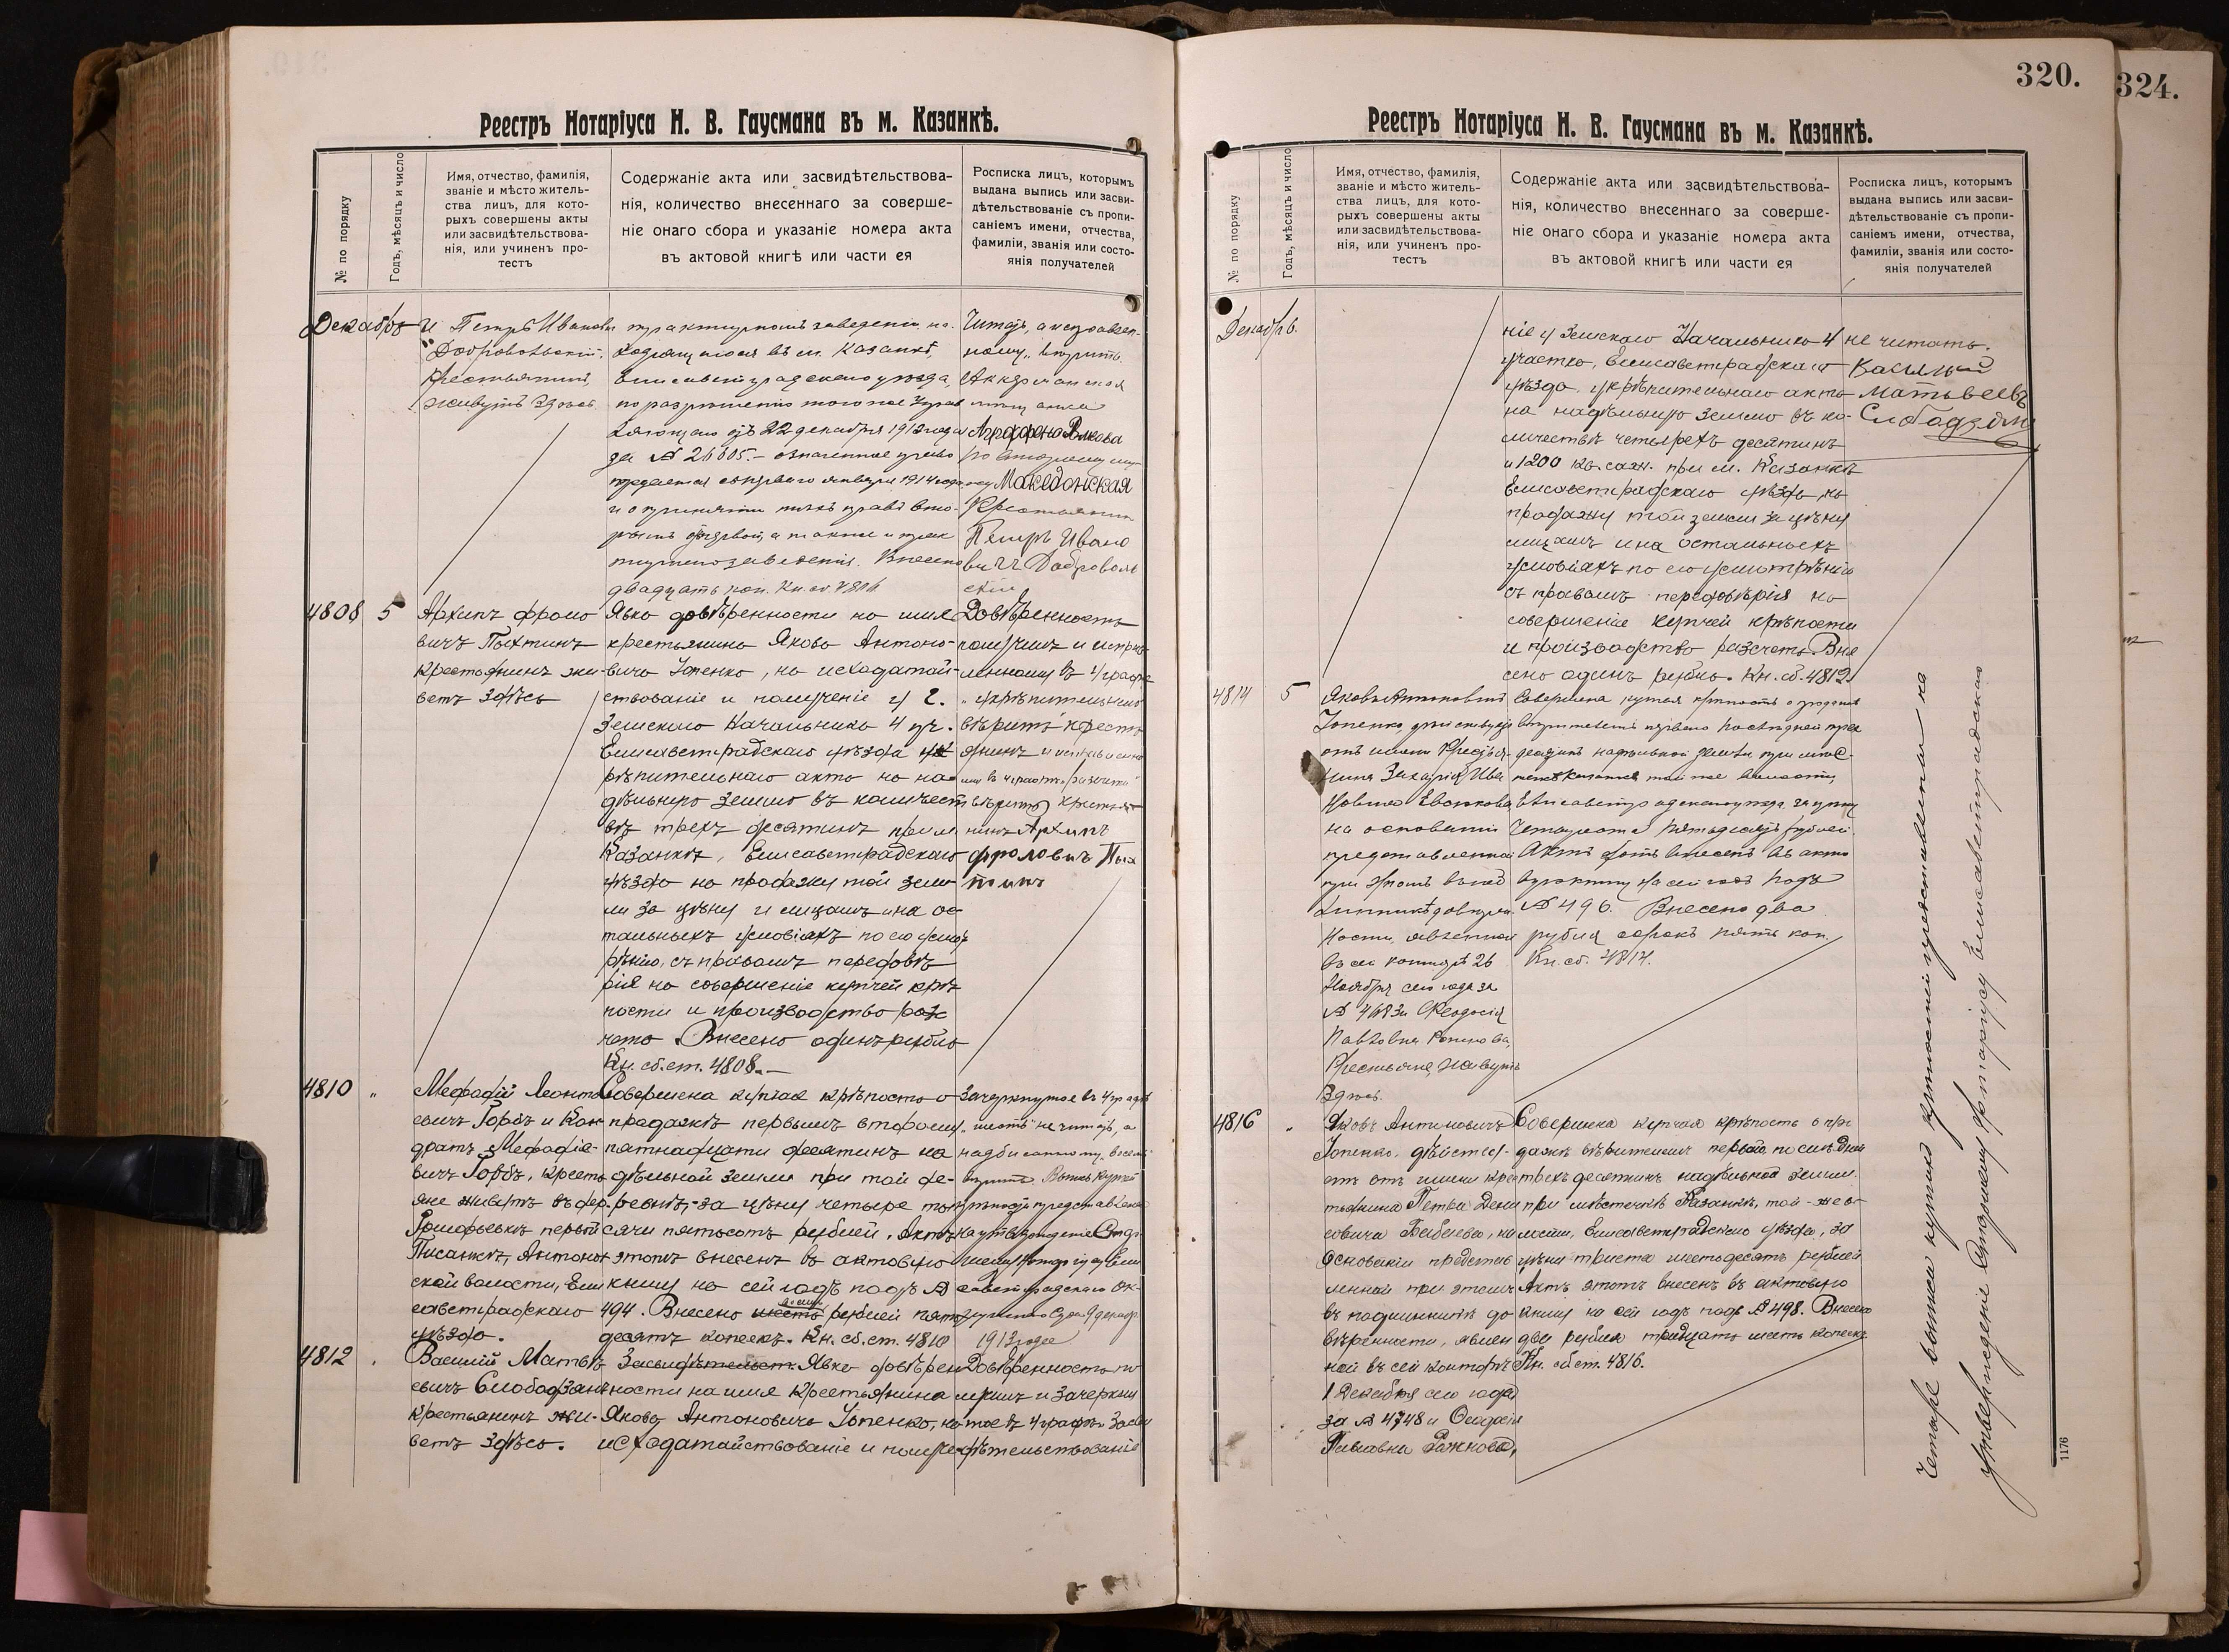 Реестръ Нотаріуса Н. В. Гаусмана въ м. Казанкѣ.
№ по порядку
Годъ, мѣсяцъ и число
Имя, отчество, фамилія,
званіе и мѣсто житель-
ства лицъ, для кото-
рыхъ совершены акты
или засвидѣтельствова-
нія, или учиненъ про-
тестъ
Содержаніе акта или засвидѣтельствова-
нія, количество внесеннаго за соверше-
ніе онаго сбора и указаніе номера акта
въ актовой книгѣ или части ея
Росписка лицъ, которымъ
выдана выпись или засви-
дѣтельствованіе съ пропи-
саніемъ имени, отчества,
фамиліи, званія или состо-
янія получателей
Декабрь
и Петръ Иванови
Добровольскій,
Крестьянинъ,
живутъ здѣсь
трактирномъ заведеніи, на-
ходящимся въ м. Казанкѣ,
Елисаветградскаго уѣзда,
по разрѣшенію того же Управ
ляющаго отъ 22 декабря 1912 года
за № 26605.-
передается съ перваго января 1914 года
и о принятіи
Внесено
двадцать коп. Кн. сб. 4806
Читать, а
вѣрить.
Аккерманская
мѣщанка
Агрофена Волкова
Македонская
Крестьянин
Петръ Ивано
вичъ Доброволь
скій
4808
5
Архипъ Фроло
вичъ Пыхтинъ
крестьянинъ жи-
ветъ здѣсь
Явка довѣренности на имя
крестьянина Якова Антоно-
вича Юпенко, на исходатай-
ствованіе и полученіе у г.
Земскаго Начальника 4 уч.
Елисаветградскаго уѣзда ук
рѣпительнаго акта на на-
дѣльную землю въ количест
вѣ трехъ десятинъ при м.
Казанкѣ, Елисаветградскаго
уѣзда на продажу той зем-
ли за цѣну и лицамъ и на ос-
тальныхъ условіяхъ по его усмот
рѣнію, съ правомъ передовѣ
рія на совершеніе купчей крѣ
пости и производство раз
чета. Внесено одинъ рубль
Кн. сб. ст. 4808.-
Довѣренность
получилъ и исправ-
ленному въ 4 графѣ
„укрѣпительнаго
вѣрить" крестья
янинъ
вѣрить) крестья
нинъ Архипъ
Фроловичъ Пых
тинъ
4810
"
Мефодій Леонть
евичъ Горбъ и Кон
дратъ Мефодіе-
вичъ Горбъ, крестья
яне живутъ въ дер.
первый
Писанкѣ, Антонов
ской волости, Ели
саветградскаго
уѣзда.
Совершена купчая крѣпость о
продажѣ первымъ второму
пятнадцати десятинъ на
дѣльной земли при той де-
ревнѣ, - за цѣну четыре ты
сячи пятьсотъ рублей. Актъ
этотъ внесенъ въ актовую
книгу на сей годъ подъ №
494. Внесено шесть восемь рублей пять
десятъ копеекъ. Кн. сб. ст. 4810
Зачеркнутое въ 4 графѣ
„шесть" не читать, а
надписанному „восемь"
вѣрить. Выпись купчей
крѣпости представлена
на утвержденіе Стар
шему Нотаріусу Ели
саветградскаго Ок-
ружнаго Суда 9 декабр
1913 года
4812
"
Василій Матвѣ
евичъ Слободзян
крестьянинъ жи-
ветъ здѣсь.
Засвидѣтельст. Явка довѣрен
ности на имя крестьянина
Якова Антоновича Юпенко, на
исходатайствованіе и получе
Довѣренность по
лучилъ и зачеркну
тое въ 4 графѣ „Засви
дѣтельствованіе
320.
324.
Реестръ Нотаріуса Н. В. Гаусмана въ м. Казанкѣ.
№ по порядку
Годъ, мѣсяцъ и число
Имя, отчество, фамилія,
званіе и мѣсто житель-
ства лицъ, для кото-
рыхъ совершены акты
или засвидѣтельствова-
нія, или учиненъ про-
тестъ
Содержаніе акта или засвидѣтельствова-
нія, количество внесеннаго за соверше-
ніе онаго сбора и указаніе номера акта
въ актовой книгѣ или части ея
Росписка лицъ, которымъ
выдана выпись или засви-
дѣтельствованіе съ пропи-
саніемъ имени, отчества,
фамиліи, званія или состо-
янія получателей
Декабрь.
ніе у Земскаго Начальника 4
участка, Елисаветградскаго
уѣзда укрѣпительнаго акта
на надѣльную землю въ ко-
личествѣ четырехъ десятинъ
и 1200 кв. саж. при м. Казанкѣ
Елисаветградскаго уѣзда, на
продажу той земли за цѣну
лицамъ и на остальныхъ
условіяхъ по его усмотрѣнію
съ правомъ передовѣрія на
совершеніе купчей крѣпости
и производство разсчета. Вне
сено одинъ рубль. Кн. сб. 4812.
не читать.
Василий
Матвеевъ
Слободзян
4814
5
Яковъ Антоновичъ
Юпенко, дѣйствующій
отъ имени Кресть-
янина Захарія Ива
новича
на основаніи
представленной
при этомъ въ под
линникѣ довѣрен
ности, явленной
въ сей конторѣ 26
Ноября сего года за
№ 4683 и Феодосія
Павловна Рожнова,
Крестьяне, живутъ
Здѣсь.
Совершена купчая крѣпость о продажѣ
довѣрителемъ перваго послѣдней трех
десятинъ надѣльной земли при мѣс-
течкѣ Казанкѣ той же волости,
Елисаветградскаго уѣзда, за цѣну
Четыреста пятьдесятъ рублей.
Актъ этотъ внесенъ въ акто
вую книгу на сей годъ подъ
№ 496. Внесено два
рубля сорокъ пять коп.
Кн. сб. 4814.
4816
"
Яковъ Антоновичъ
Юпенко, дѣйству-
етъ отъ имени кре
стьянина Петра Дени
совича на
основаніи представ
ленной при этомъ
въ подлинникѣ до
вѣренности, явлен
ной въ сей конторѣ
1 Декабря сего года
за № 4748 и Феодосія
Павловна Рожнова,
Совершена купчая крѣпость о про
дажѣ вѣрителемъ перваго послѣдней
трехъ десятинъ надѣльной земли
при мѣстечкѣ Казанкѣ, той-же во-
лости, Елисаветградскаго уѣзда, за
цѣну триста шестьдесятъ рублей
Актъ этотъ внесенъ въ актовую
книгу на сей годъ подъ № 498. Внесено
два рубля тридцать шесть копеекъ.
Кн. сб. ст. 4816.
Четыре выписи купчихъ крѣпостей представлены на
утвержденіе Старшему Нотаріусу Елисаветградскаго
1176